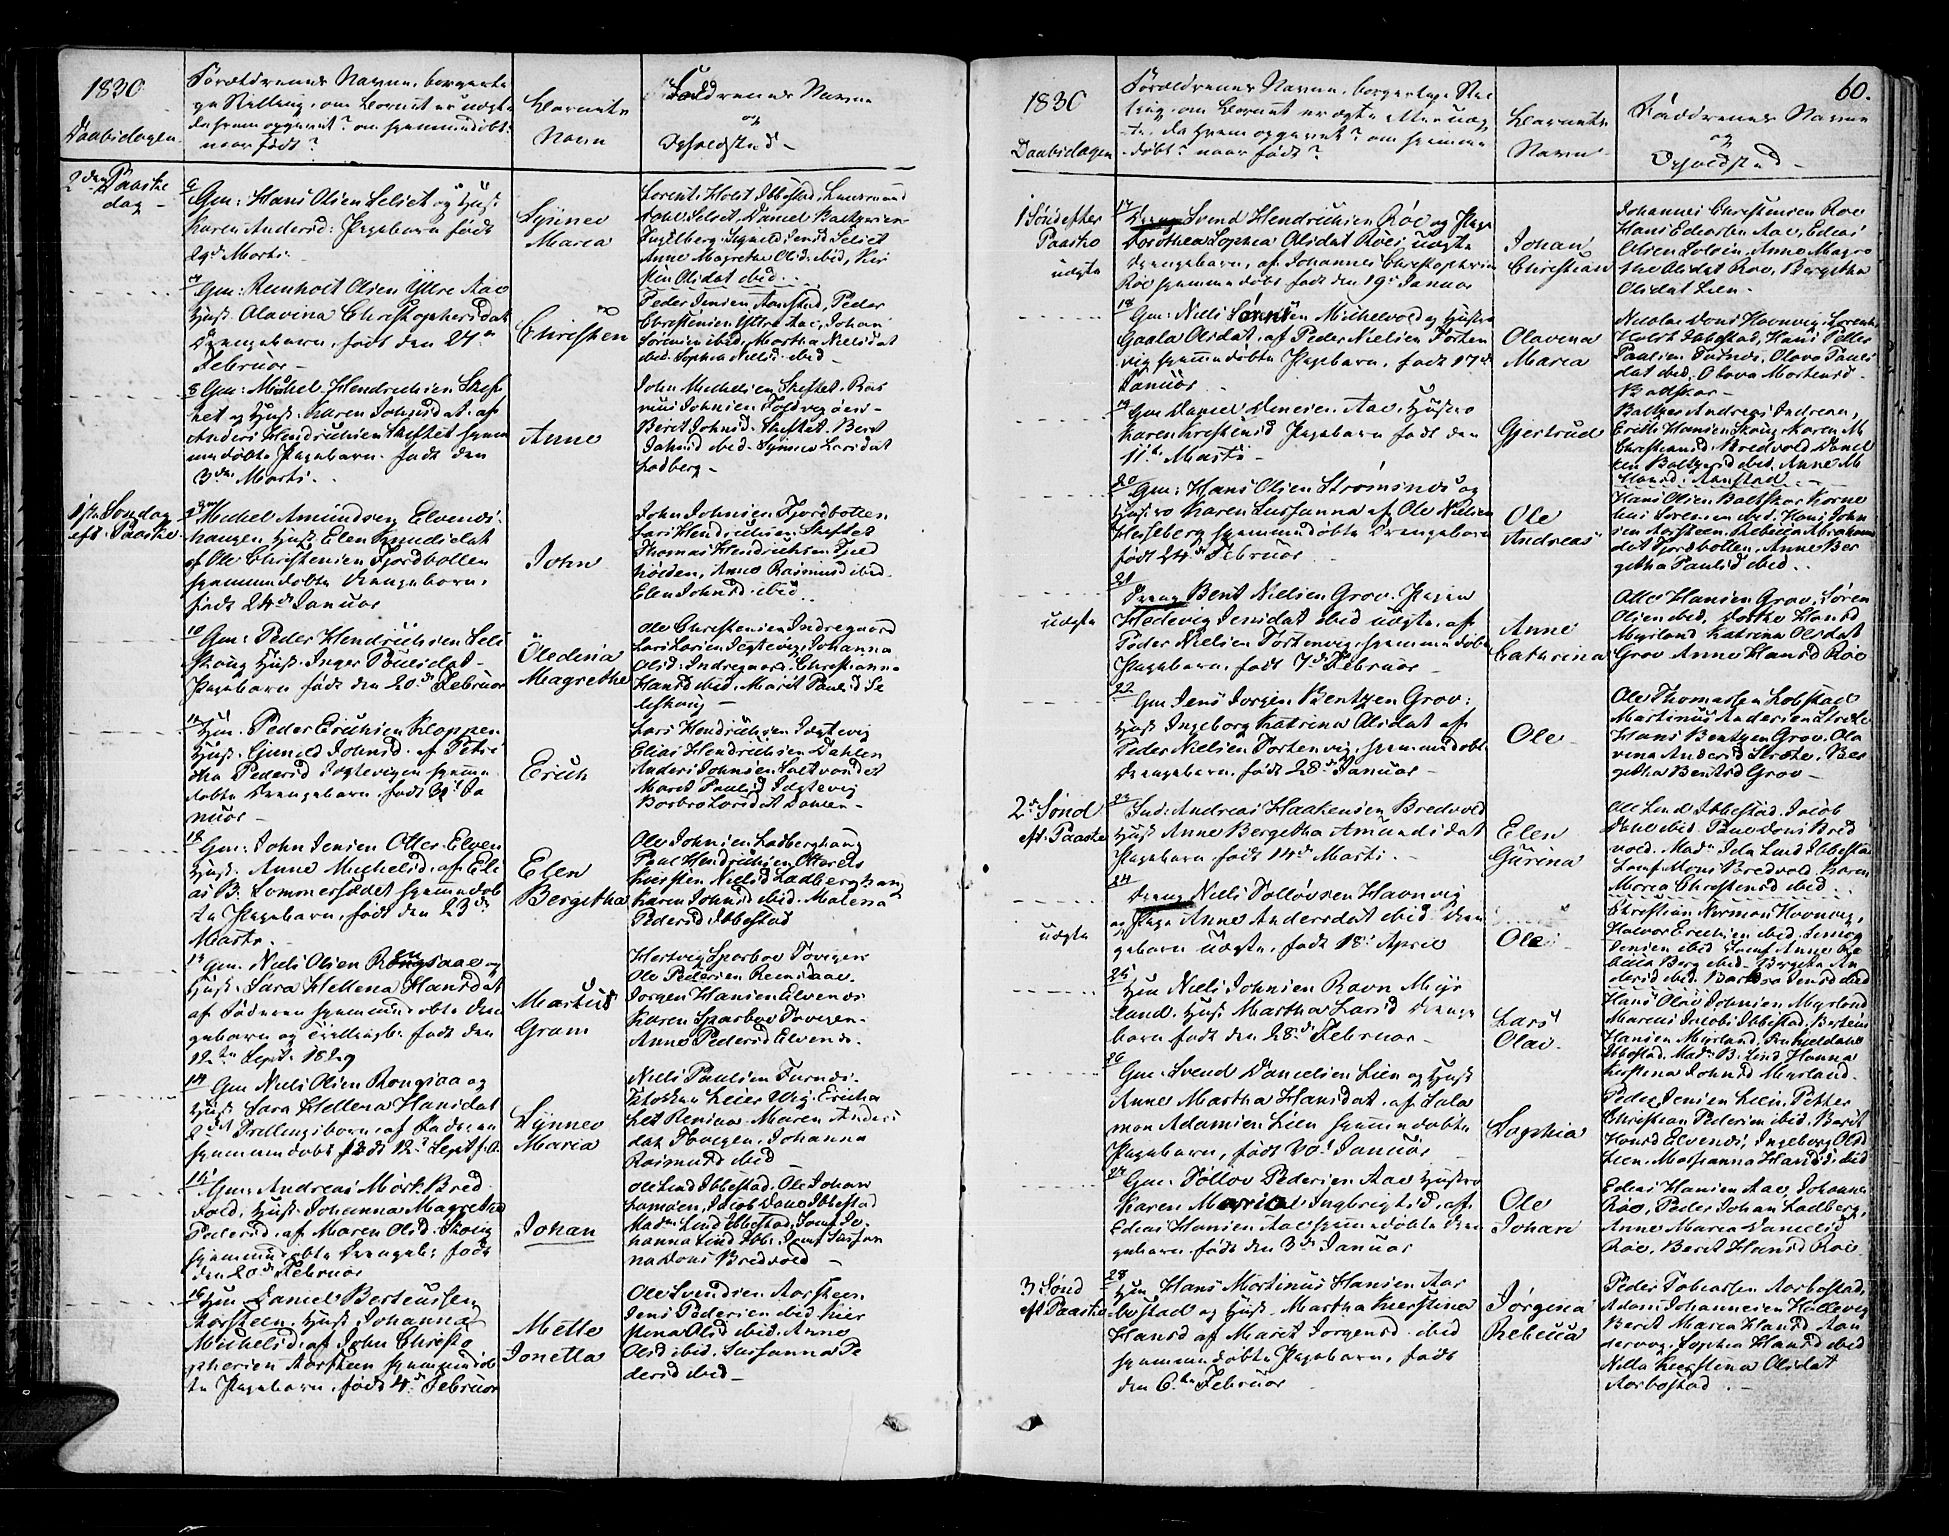 1830
Daabsdagen
Forældrenes Navne, borgerli-
ge Stilling, om Barnet er uægte
da hvem opgivet? om hjemmedøbt
naar født?
Barnets
Navn
Faddrenes Navne
og
Opholdsted -
2den Paaske
dag -
6
Gm: Hans Olsen Selset og Hust
Karen Andersd: Pigebarn født
29d Marts.
Synnev
Maria
Lorents Holst Ibbestad, Lensmand
Selset, Daniel Baltzersen
Ingelberg Sigvald Jensd Selset
Anne Magrethe Olsd. ibid, Kir
sten Olsdat ibid.
7
Gm: Reinholt Olsen Yttre Aae
Hust Olavina Christophersdat
Drengebarn, født den 24de
Februar -
Christen
Peder Jensen Aanstad, Peder
Christensen Yttre Aae, Johan
Sørensen ibid, Martha Nielsdat
ibid. Sophia Nielsd. ibid -
8 Gm: Mickel Hendrichsen Skef-
tet og Hust. Karen Johnsdat. af
Anders Hendrichsen Skeftet hjem
medøbte Pigebarn. født den
3die Marts. -
Anne
John Michelsen Skeftet, Ras
mus Johnsen
Beret Johnsd. Skeftet. Beret
Johnsd ibid. Synnev Larsdat
Ladberg -
1ste Søndag
eft. Paaske
9 Michel Amundsen Elvenes-
haugen Hust. Elen Knudsdat
af Ole Christensen Fjordbotten
hjemmedøbte Drengebarn.
født 24d Januar
John
John Johnsen Fjordbotten
Lars Hendrichsen Skeftet
Thomas Hendrichsen Fjed
Anne Rasmusd ibid.
Elen Johnsd. ibid.
10
Gm: Peder Hendrichsen Sel
skoug Hust. Inger Poulsdat -
Pigebarn født den 20d Februar
Oledina
Magrethe
Ole Christensen Indregaard
Lars Larsen Jegtevig, Johanna
Olsd. Indregaard. Christianna
Hansd ibid. Marit Paulsd Se
lskoug -
11
Gm. Peder Erichsen Kloppen
Hust. Gunild Johnsd. af Petri
cha Pedersd Jegtevigen hjemme
døbte Drengebarn. født 31d Ja
nuar -
Erich
Lars Hendrichsen Jegtevig
Elias Hendrichsen Dahlen
Anders Johnsen Saltvandet
Maret Paulsd Jegtevig
Barbro Larsdat Dahlen -
12
Gm: John Jensen Otter-Elven
Hust. Anne Michelsd. af Eli
as B. Sommersædet hjemmedøb
te Pigebarn, født den 23de
Marts. -
Elen
Bergetha
Ole Johnsen Ladberghaug
Paul Hendrichsen Ottereid
Kiersten Nielsd Ladberghaug
Karen Johnsd ibid. Malena
Pedersd. Ibbestad
13
Gm. Niels Olsen Rongsaae og
Hust. Sara Hellena Hansdat
af Faderen hjemmedøbte Dren
gebarn og Tvillingb: født den
12te Septr 1829
Markus
Gram
Hertvig Sparboe Tovigen.
Ole Pedersen Rensaae.
Jørgen Hansen Elvenes.
Karen Sparboe Tovigen.
Anne Pedersd Elvenes.
14
Gm Niels Olsen Rongsaa og
Hust Sara Hellena Hansdat
2det Trillingsbarn, af Faderen
hjemmedøbt født 12te Sept. f. A.
Synnev
Maria
Niels Paulsen Furnes.
Klokker Leier Vig. Ericha
Maren Anders
dat Tovigen. Johanna
Rasmusd ibid -
15
Gm: Andreas Mørk Bred
vold, Hust. Johanna Magretha
Pedersd. af Maren Olsd. Skoug
hjemmedøbte Drengeb: født
den 20d Februar
Johan
Ole Lind Ibbestad. Ole Johan
Jacob Dons Ibbestad
Madm Lind Ibbestad, Jomf. Jo-
hanna Lind Ibb: Jomf Susan
na Dons Bredvold -
16
Gm Daniel Berteussen
Aarsteen. Hust Johanna
Michelsd. af John Christo
phersen Aarsteen hjemmedøb
te Pigebarn, født 4d Februar
Mette
Jonetta
Ole Svendsen Aarsteen
Jens Pedersen ibid Kier
stena Olsd ibid. Anne
Olsd ibid. Susanna Pe
dersd ibid -
60.
1830
Daabsdagen
Forældrenes Navne, borgerlige Stil
ling, om Barnet er ægte eller uæg
te, da hvem opgivet? om hjemme
døbt? naar født?
Barnets
Navn
Faddrenes Navne
og
Opholdsted -
1 Sønd efter
Paaske
uægte
17
Dreng Svend Hendrichsen Roe og Pige
Dorothea Sophia Olsdat Roe, uægte
Drengebarn, af Johannes Christophersen
Roe hjemmedøbt født den 19d Januar
Johan
Christian
Johannes Christensen Roe
Hans Edvardsen Aae, Edias
Olsen Anne Magre
the Olsdat Roe, Bergetha
Olsdat Lien -
18
Gm: Niels Sørensen Michelvold og Hustro
Gaala Olsdat, af Peder Nielsen Forten
vig hjemmedøbte Pigebarn, født 17de
Januar
Olavena
Maria
Nicolai Dons Havnvig, Lorents
Holst Ibbestad, Hans Petter
Paulsen Furnes, Olava Pauls
dat ibid. Olava Mortensd.
Baltskar -
19
Gm Daniel Aae. Hustro
Karen Kirstensd Pigebarn født den
11te Marts -
Gjertrud
Baltzer Andreas Andreasen,
Erich Hansen Skoug Karen M
Christensd. Bredvold, Daniel
sen Baltzersd ibid. Anne M
Aanstad. -
20
Gm: Hans Olsen Strømsnes og
Hustro Karen Sussanna af Ole Nielsen
Hesleberg hjemmedøbte Drengebarn
født 24d Februar
Ole
Andreas
Hans Olsen Baltskar Korne
lius Sørensen ibid. Hans John
sen Aarsteen. Rebecca Abraham
dat Fjordbotten. Anne Ber
getha Paulsd ibid.
21
uægte
Dreng Bent Nielsen Grov. Pigen
Hedevig Jensdat ibid uægte. af
Peder Nielsen Fortenvig, hjemmedøbt
Pigebarn, født 7d Februar -
Anne
Cathrina
Otto Hansen Grov, Søren
Olsen ibid, Dorthe Hansd
Myrland Katrina Olsdat
Grov Anne Hansd Roe
22
Gm Jens Jørgen Bentzen Grov:
Hust Ingeborg Katrina Olsdat af
Peder Nielsen Fortenvig, hjemmedøbt
Drengebarn. født 28d Januar -
Ole
Ole Thomassen Lobstad
Martinus Andersen Strøte
Hans Bentzen Grov. Ola
vina Andersd Strøte. Ber
getha Bentsd Grov -
2d Sønd
eft. Paaske
23
Ind: Andreas Haakensen Bredvold
Hust Anne Bergetha Amundsdat
Pigebarn født 14d Marts. -
Elen
Gurina
Ole Lind Ibbestad. Jacob
Dons ibid. Paul Dons Bred
vold. Madm Ida Lind Ibbesta
Jomf Mons Bredvold. Karen
Maria Christensd ibid.
24
uægte
Dreng Niels Dolløvsen Havnvig
og Pige Anne Andersdat ibid Dren
gebarn uægte. født 18d April
Ole
Christian Norman Havnvig,
Halvor Erichsen ibid. Simon
Jensen ibid. Jomf. Anne Re
becca Berg ibid. Bergitha An
dersd ibid. Barbra Jensd ibid
25
Gm Niels Johnsen Ravn Myr
land. Hust Martha Larsd Drenge
barn født den 28d Februar -
Lars
Olav
Hans Olav Johnsen Myrland
Marcus Jacobs Ibbestad. Berteus
Hansen Myrland.
Ibbestad. Madm B. Lind Hanna
Kirstina Johnsd Myrland.
26
Gm: Svend Danielsen Lien og Hust
Anne Martha Hansdat. af Salo
mon Adamsen Lien hjemmedøbte
Pigebarn, født 20d Januar
Sophia
Peder Jensen Lien. Petter
Christian Pedersen ibid. Berit
Hansd Elvenes, Ingeborg Olsd
Lien. Marianna Hansd. ibid
27
Gm: Tolløv Pedersen Aae Hustro
Karen Maria Ingbrigtsd. af
Edias Hansen Aae hjemmedøbte Dren
gebarn født den 3d Januar
Ole
Johan
Edias Hansen Aae, Johannes
Roe, Peder Johan Ladberg,
Anne Maria Danielsd
Roe. Berit Hansd Roe.
3 Sønd
eft Paaske
28
Gm Hans Mortinus Hansen Aar
bostad og Hust. Martha Kierstina
Hansd af Maret Jørgensd. ibid
hjemmedøbte Pigebarn, født
den 6te Februar
Jørgina
Rebecca
Peder Tobiassen Aarbostad,
Adam Johannesen Hallevig
Berit Maria Hansd Aan
dervog. Sophia Hansd ibid
Nilla Kierstina Olsdat
Aarbostad. -